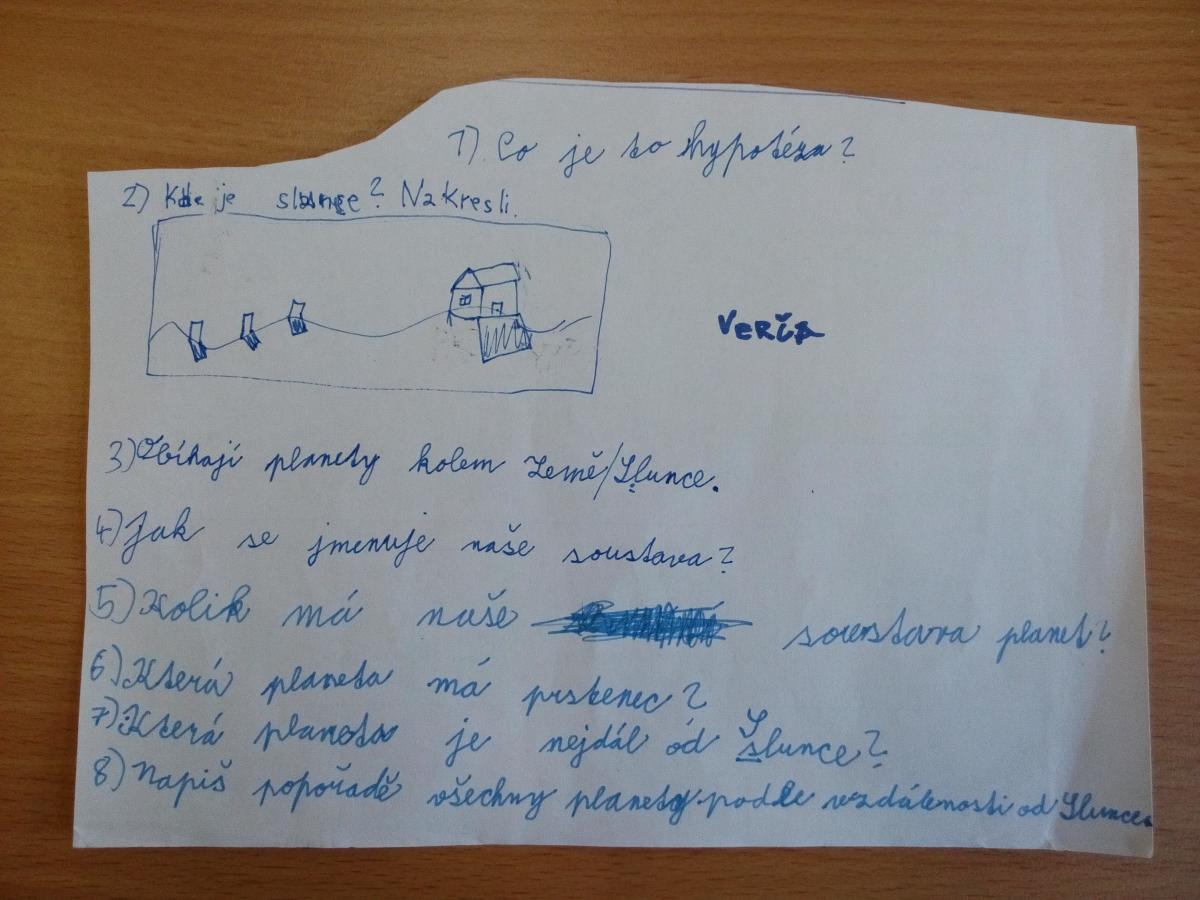 1) Co je to hypotéza?
2) Kde je slunce? Nakresli.
Verča
3) Obíhají planety kolem Země/Slunce.
4) Jak se jmenuje naše soustava?
5) Kolik má naše soustava planet?
6) Která planeta má prstenec?
7) Která planeta je nejdál od Slunce?
8) Napiš popořadě všechny planety podle vzdálenosti od Slunce.